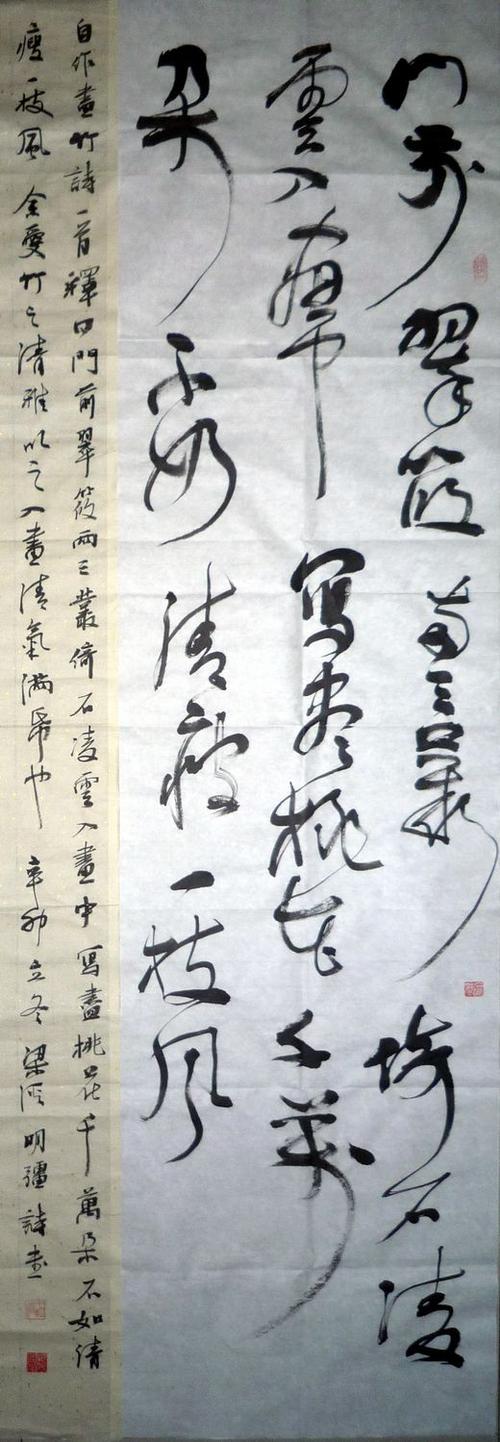 門前翠筱兩三叢倚石凌
雲入畫中寫盡桃花千萬
朵不如清瘦一枝風
自作畫竹詩一首釋曰門前翠筱兩三叢倚石凌雲入畫中寫盡桃花千萬朵不如清
瘦一枝風余愛竹之清雅以之入畫清氣滿帋也辛卯立冬梁溪明疆詩畫